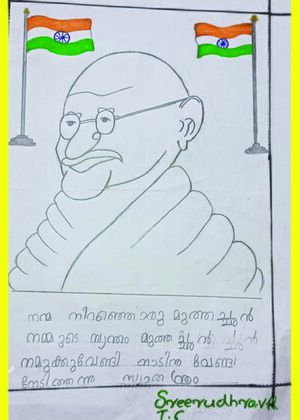 നന്മ നിറഞ്ഞൊരു മുത്തച്ഛൻ
നമ്മുടെ സ്വന്തം മുത്തച്ഛൻ
നമുക്കുവേണ്ടി നാടിനു വേണ്ടി
നേടിത്തന്ന സ്വാതന്ത്ര്യം
Sreerudhra VR
I.C